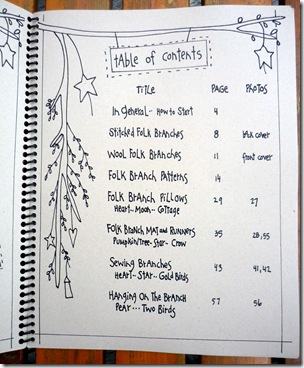 table of contents
Title PAGE PHOTOS
In general-- How to Start 4
Stitched Folk Branches 8 bak cover
Wool Folk Branches 11 front cover
Folk Branch Patterns 14
Folk Branch Pillows 29 27
Heart-- Moon-- Cottage
Folk Branch Mat and Runners 35 28,55
Pumpkin/Tree- Star- Crow
Sewing Branches 43 41,42
Heart-- Star-- Gold Birds
Hanging On The Branch 57 56
Pear --- Two Birds